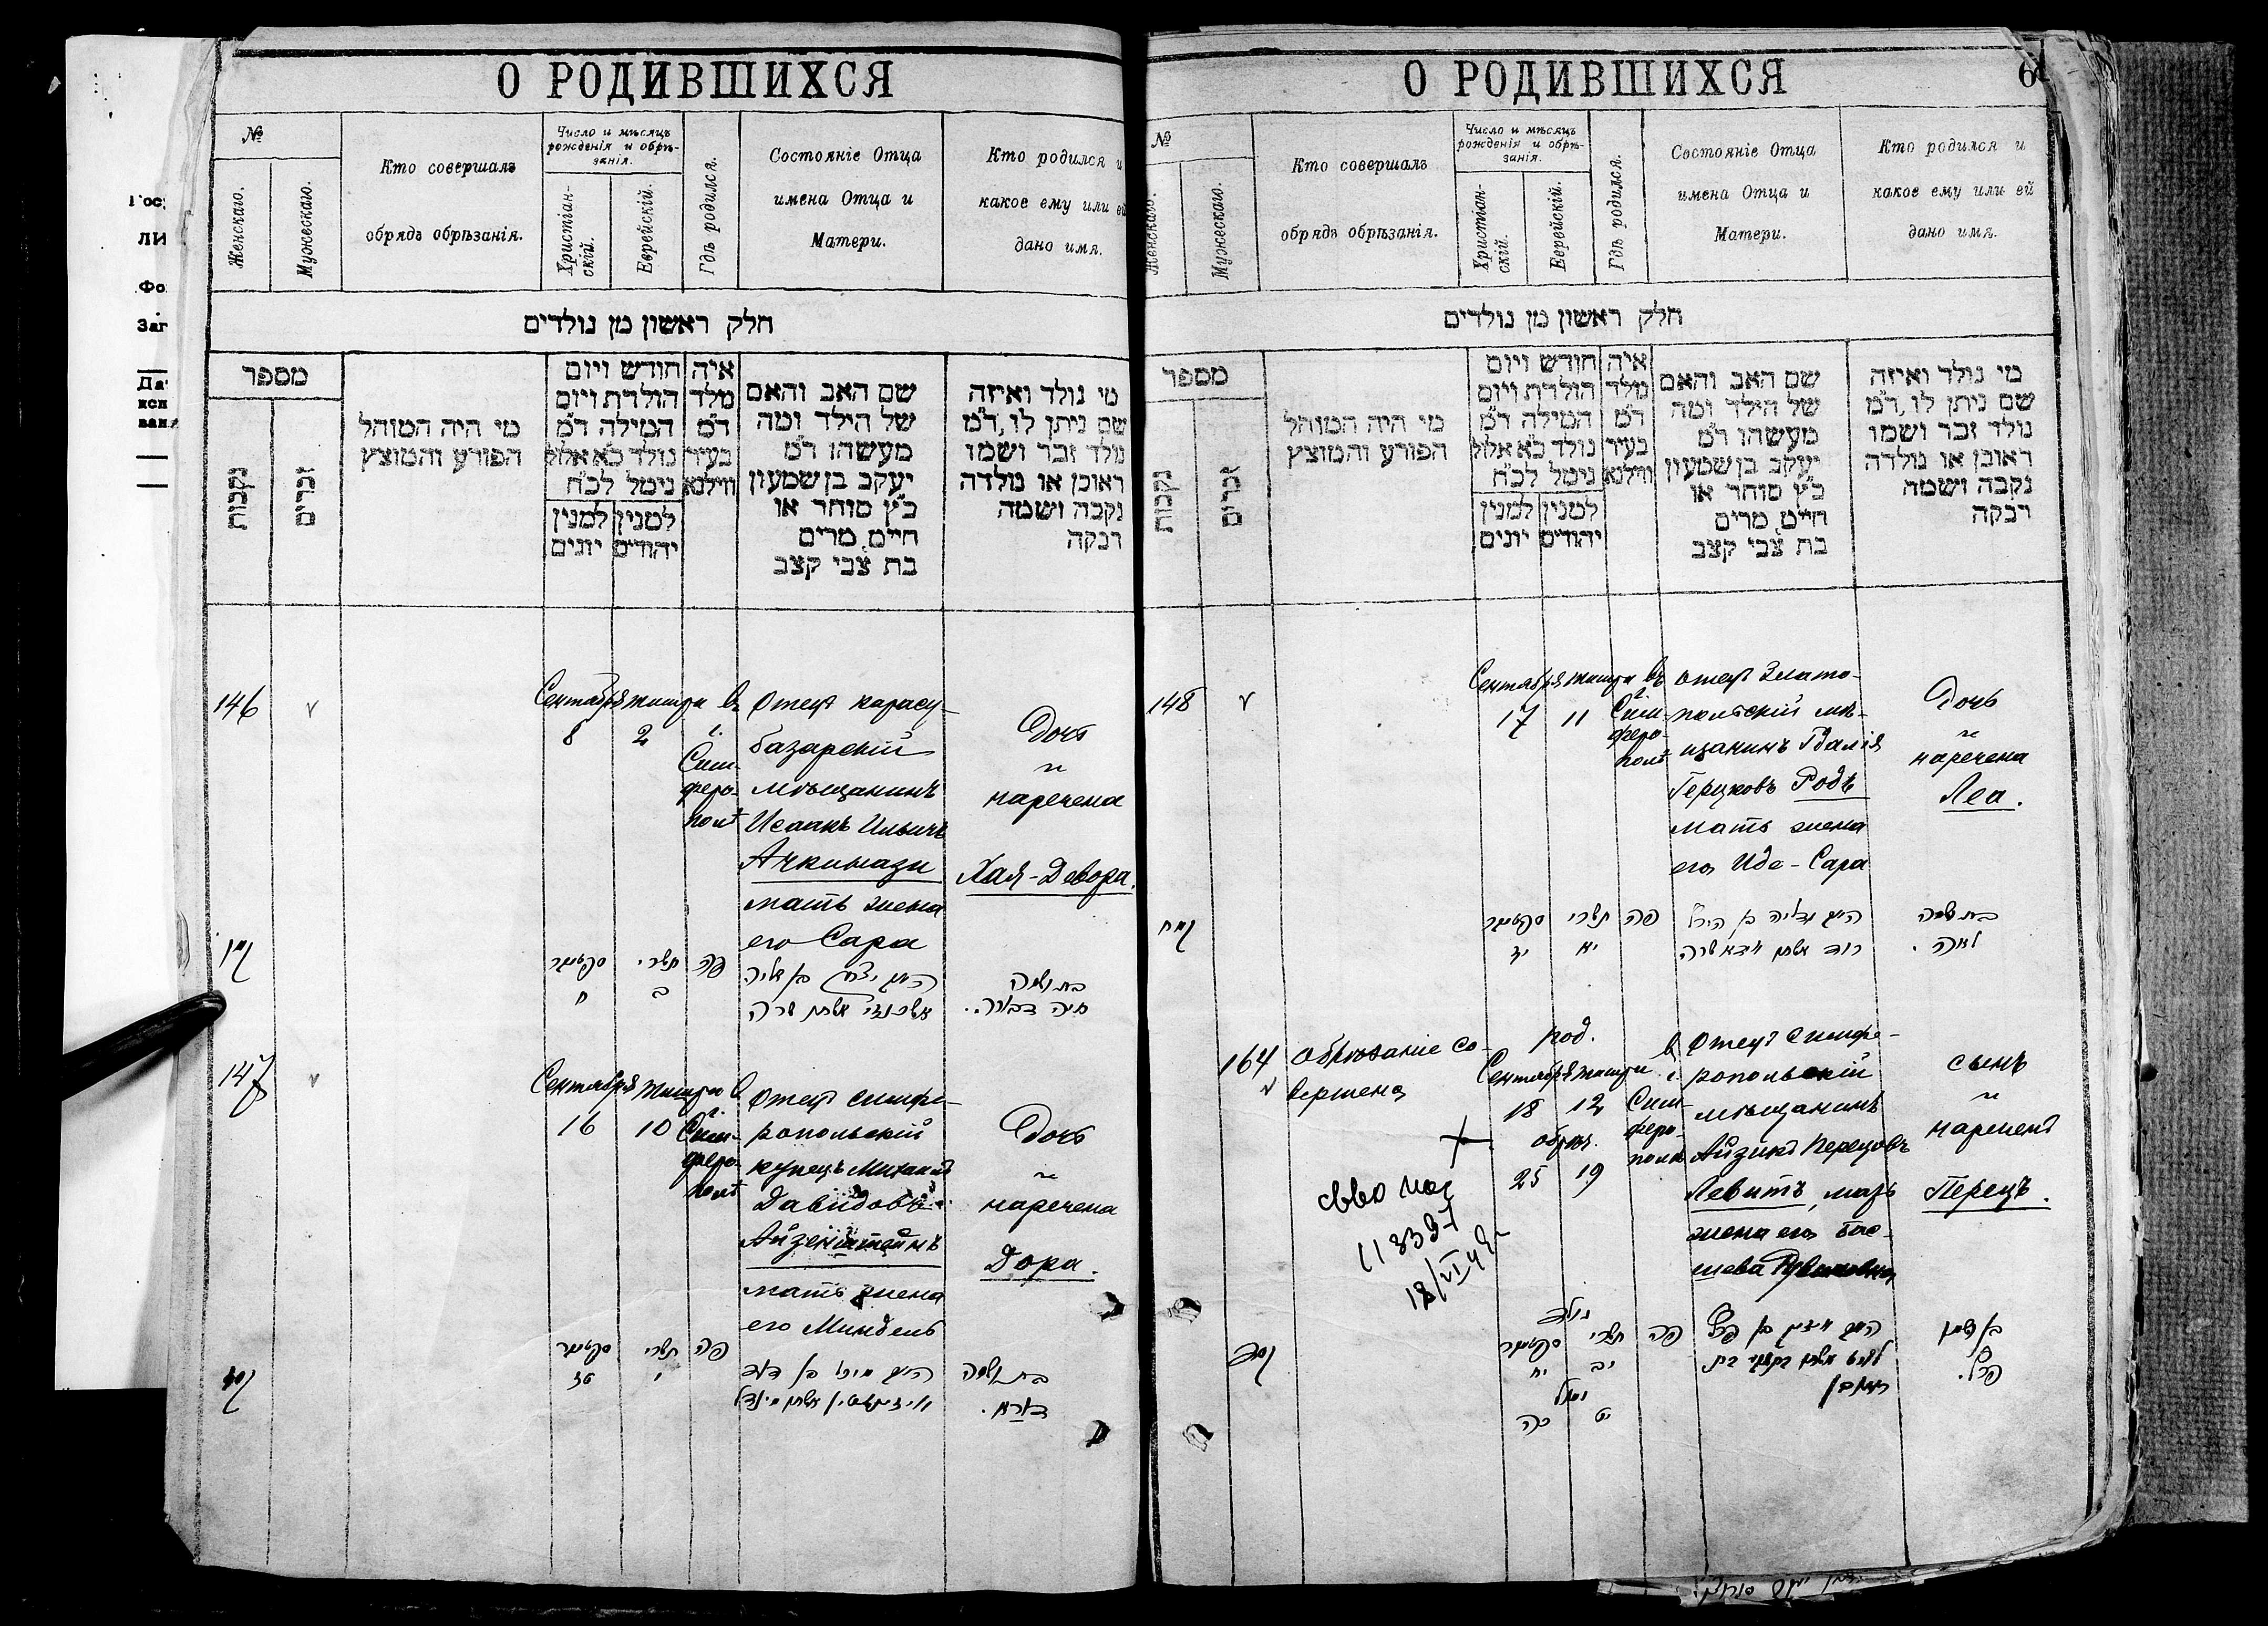 О РОДИВШИХСЯ
№
Женскаго.
Мужескаго.
Кто совершалъ
обрядъ обрѣзанія.
Число и мѣсяцъ
рожденія и обрѣ-
занія.
Христіан-
скій.
Еврейскій.
Гдѣ родился.
Состояніе Отца
имена Отца и
Матери.
Кто родился и
какое ему или ей
дано имя.
חלק ראשון מן נולדים
מספר
נקבות
זכרים
מי היה המוהל
הפורע והמוצץ
חודש ויום
הולדת ויום
המילה ד״מ
נולד כא אלול
נימל לכ״ח
למנין
יהודים
למנין
יונים
איה
מלד
ד״מ
בעיר
ווילנא
שם האב והאם
של הילד ומה
מעשהו ד״מ
יעקב בן שמעון
כ״ץ סוחר או
חיים, מרים
בת צבי קצב
מי נולד ואיזה
שם ניתן לו, ד״מ
נולד זכר ושמו
ראובן או נולדה
נקבה ושמה
רבקה
146
Сентября
8
Тишри
2
в
г.
Сим-
феро-
полѣ
Отецъ карасу-
базарскій
мѣщанинъ
Исаакъ Ильичъ
Ачкинази
мать жена
его Сара
Дочь
наречена
Хая-Девора.
סקטמבר
ח
תשרי
ב
פה
האב יצחק בן אליה
אשכנזי אשתו שרה
בת ושמה
חיה דבורה.
147
Сентября
16
Тишри
10
в
г.
Сим-
феро-
полѣ
Отецъ симфе-
ропольскій
купецъ Михаилъ
Давидовъ
Айзенштейнъ
мать жена
его Миндель
Дочь
наречена
Дора.
סקטמבר
טז
תשרי
י
פה
בת ושמה
דורא.
О РОДИВШИХСЯ
61
№
Женскаго.
Мужескаго.
Кто совершалъ
обрядъ обрѣзанія.
Число и мѣсяцъ
рожденія и обрѣ-
занія.
Христіан-
скій.
Еврейскій.
Гдѣ родился.
Состояніе Отца
имена Отца и
Матери.
Кто родился и
какое ему или ей
дано имя.
חלק ראשון מן נולדים
מספר
נקבות
זכרים
מי היה המוהל
הפורע והמוצץ
חודש ויום
הולדת ויום
המילה ד״מ
נולד כא אלול
נימל לכ״ח
למנין
יהודים
למנין
יונים
איה
מלד
ד״מ
בעיר
ווילנא
שם האב והאם
של הילד ומה
מעשהו ד״מ
יעקב בן שמעון
כ״ץ סוחר או
חיים, מרים
בת צבי קצב
מי נולד ואיזה
שם ניתן לו, ד״מ
נולד זכר ושמו
ראובן או נולדה
נקבה ושמה
רבקה
148
Сентября
17
Тишри
11
въ
г.
Сим-
феро-
полѣ
Отецъ Злато-
польскій мѣ-
щанинъ Гдалія
Герцковъ Родъ
мать жена
его Иде-Сара
Дочь
наречена
Леа.
קמח
סקטמבר
יז
תשרי
יא
פה
האב גדליה בן הירץ
רוד אשתו אידא שרה
בת ושמה
לאה.
164
Обрѣзаніе со-
вершено
род.
Сентября
18
Тишри
12
обрѣз.
25
19
в
г.
Сим-
феро-
полѣ
Отецъ симфе-
ропольскій
мѣщанинъ
Айзикъ Перецовъ
Левитъ, мать
жена его Бас-
шева
сынъ
нареченъ
Перецъ.
נולד
סקטמבר
יח
תשרי
יב
נימול
כה
יט
פה
האב אייזיק בן פרץ
לעוויט אשתו
בן ושמו
פרץ.